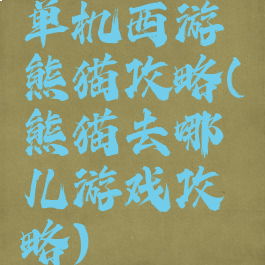 单机西游
熊猫攻略(
熊猫去哪
儿游戏攻
略)